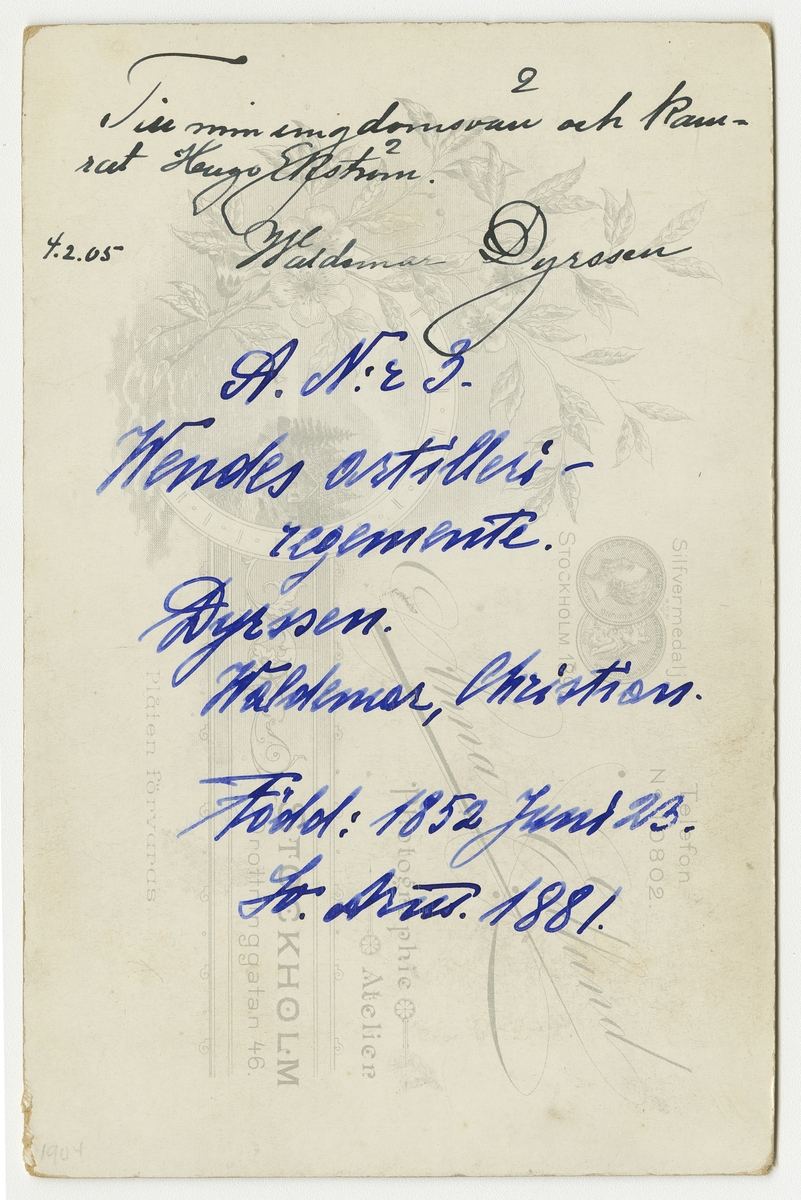 Till min ungdomsvän och kam-
rat Hugo Ekström.
4.2.05
Waldemar Dyrssen
A. N:r 3.
Wendes artilleri-
regemente.
Dyrssen.
Waldemar, Christian.
Född: 1852 Juni 23.
1881.
Silfvermedalj
STOCKHOLM
Telefon
Plåten förvaras
Photographie
Atelier
STOCKHOLM
Drottninggatan 46.
1904